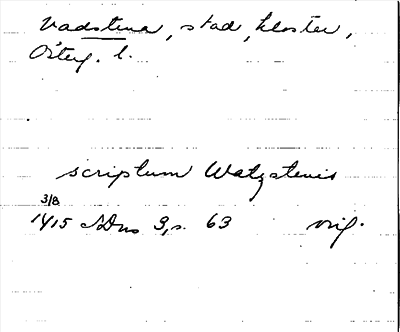 Vadstena, stad, kloster,
Österg. l.
scriptum Watzstenis
3/8
1415 SDns 3, s. 63 orig.